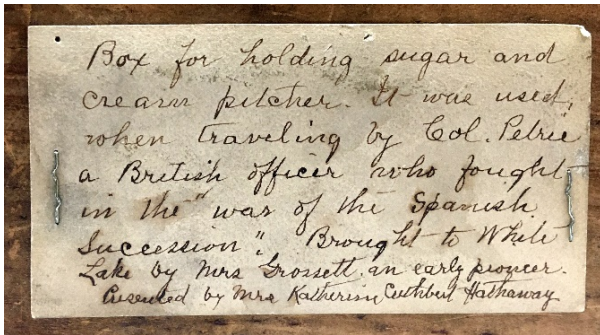 Box for holding sugar and
cream pitcher. It was used,
when traveling by Col. Petrie
a British officer who fought
in the "war of the Spanish
Succession". Brought to White
Lake by Mrs Grossett. an early pioneer.
Presented by Mrs Katherine Cuthbert Hathaway